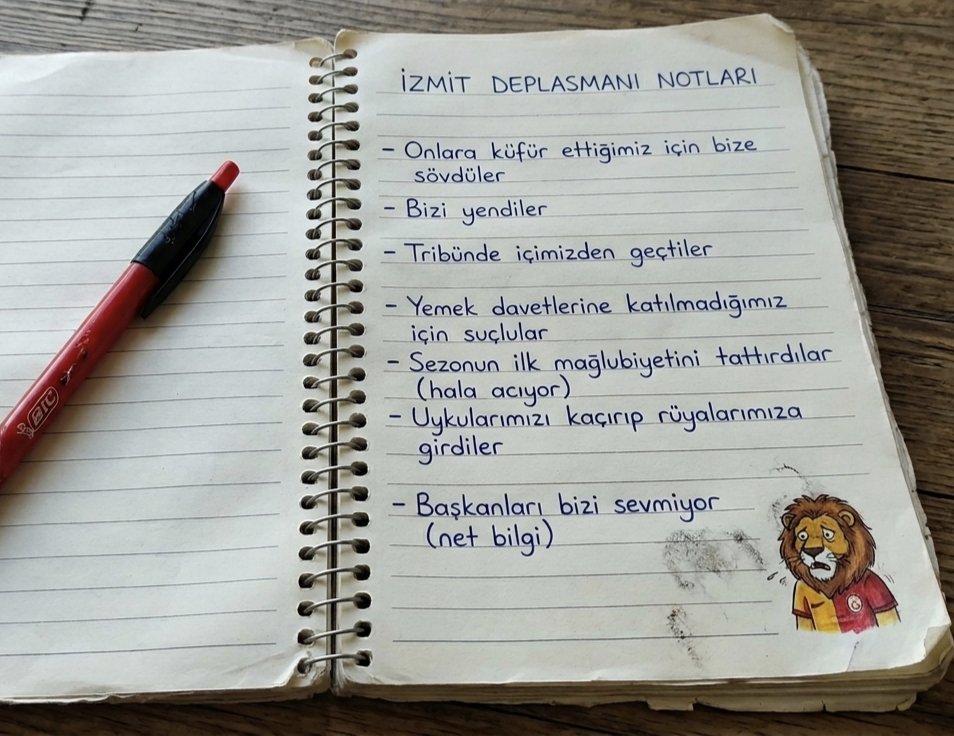 İZMİT DEPLASMANI NOTLARI
- Onlara küfür ettiğimiz için bize
sövdüler
- Bizi yendiler
- Tribünde içimizden geçtiler
- Yemek davetlerine katılmadığımız
için suçlular
- Sezonun ilk mağlubiyetini tattırdılar
(hala acıyor)
- Uykularımızı kaçırıp rüyalarımıza
girdiler
- Başkanları bizi sevmiyor
(net bilgi)
BIC